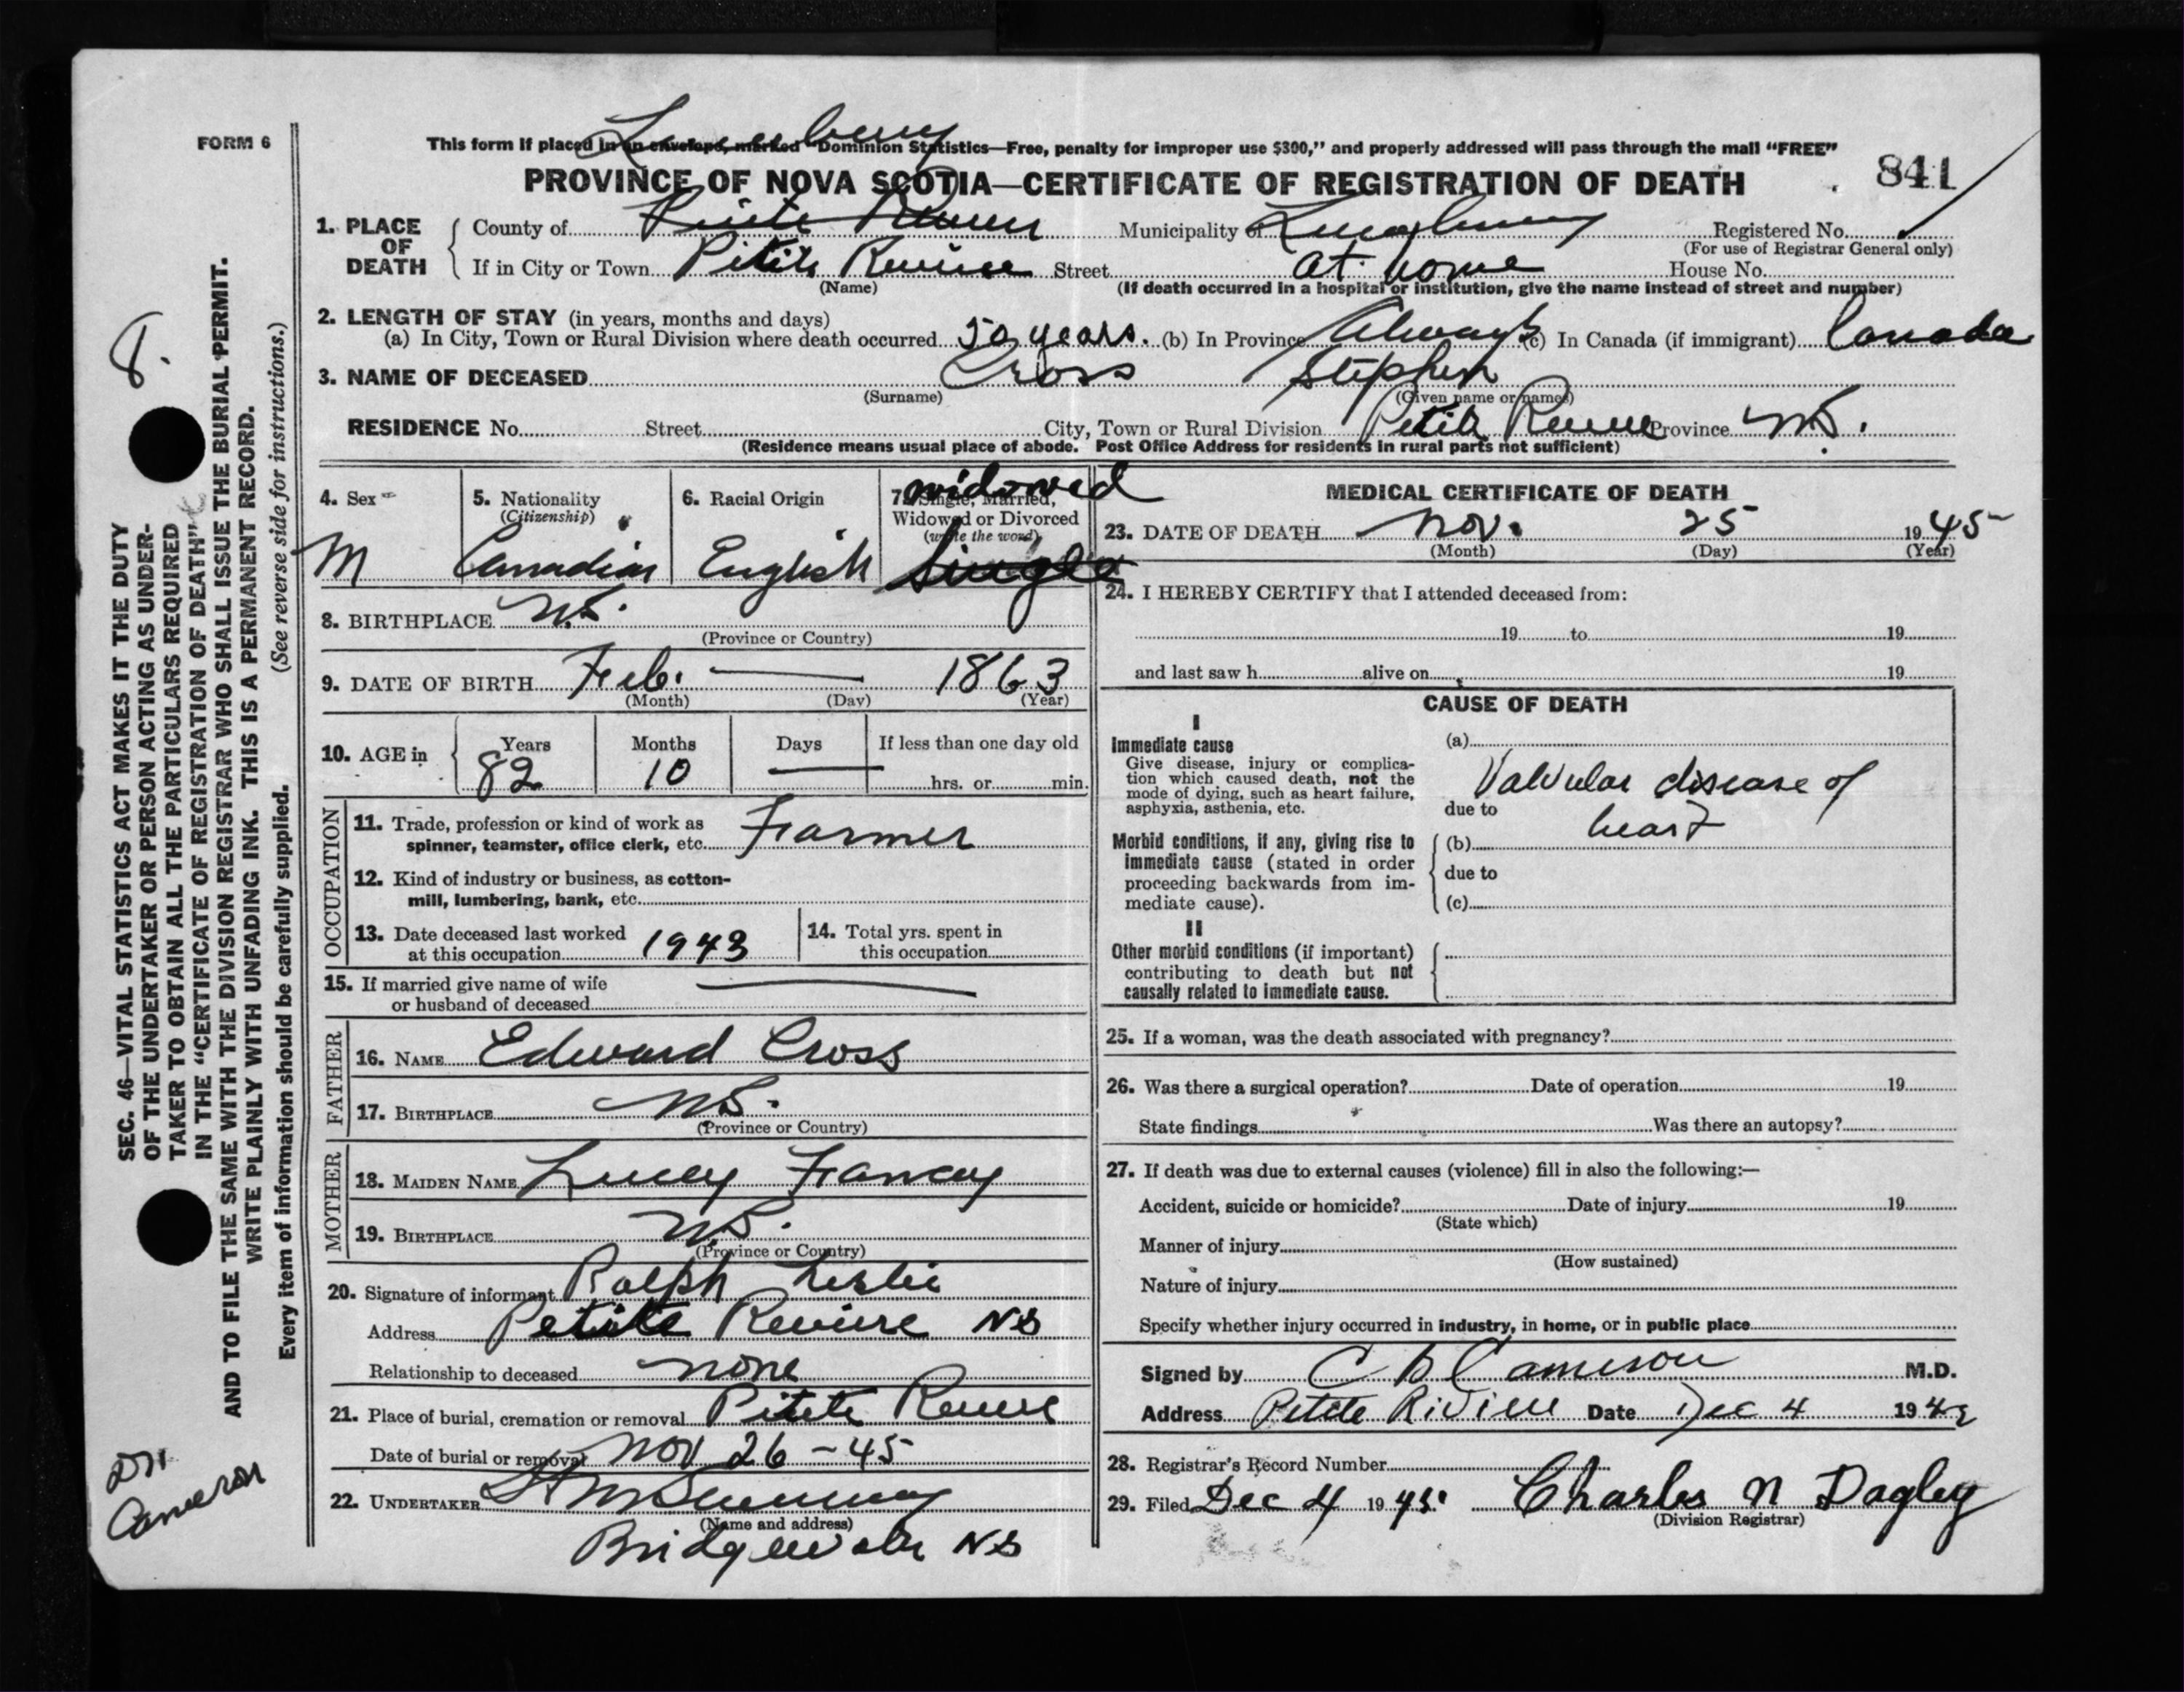 FORM 6
Lunenburg
This form if placed in an envelope, marked "Dominion Statistics—Free, penalty for improper use $300," and properly addressed will pass through the mail "FREE"
PROVINCE OF NOVA SCOTIA—CERTIFICATE OF REGISTRATION OF DEATH
841
1. PLACE OF DEATH
County of Petite Riviere Municipality of Lunenburg Registered No.
(For use of Registrar General only)
If in City or Town Petite Reviere Street at home House No.
(Name) (If death occurred in a hospital or institution, give the name instead of street and number)
2. LENGTH OF STAY (in years, months and days)
(a) In City, Town or Rural Division where death occurred 50 years. (b) In Province Always (c) In Canada (if immigrant) Canada
3. NAME OF DECEASED Cross Stephen
(Surname) (Given name or names)
RESIDENCE No. Street City, Town or Rural Division Petite Reviere Province N.S.
(Residence means usual place of abode. Post Office Address for residents in rural parts not sufficient)
4. Sex M
5. Nationality (Citizenship) Canadian
6. Racial Origin English
7. Single, Married, Widowed or Divorced (write the word) widowed Single
8. BIRTHPLACE N.S.
(Province or Country)
9. DATE OF BIRTH Feb. — 1863
(Month) (Day) (Year)
10. AGE in Years Months Days If less than one day old
82 10 — hrs. or min.
OCCUPATION
11. Trade, profession or kind of work as
spinner, teamster, office clerk, etc. Farmer
12. Kind of industry or business, as cotton-
mill, lumbering, bank, etc.
13. Date deceased last worked
at this occupation 1943
14. Total yrs. spent in
this occupation
15. If married give name of wife
or husband of deceased —
FATHER
16. NAME Edward Cross
17. BIRTHPLACE N.S.
(Province or Country)
MOTHER
18. MAIDEN NAME Lucey Francey
19. BIRTHPLACE N.S.
(Province or Country)
20. Signature of informant Ralph Leslie
Address Petite Reviere NS
Relationship to deceased none
21. Place of burial, cremation or removal Petite Reviere
Date of burial or removal Nov 26 - 45
22. UNDERTAKER
(Name and address)
Bridgewater NS
MEDICAL CERTIFICATE OF DEATH
23. DATE OF DEATH Nov. 25 1945
(Month) (Day) (Year)
24. I HEREBY CERTIFY that I attended deceased from:
19 to 19
and last saw h alive on 19
CAUSE OF DEATH
I
Immediate cause
Give disease, injury or complica-
tion which caused death, not the
mode of dying, such as heart failure,
asphyxia, asthenia, etc.
(a)
Valvular disease of
due to heart
Morbid conditions, if any, giving rise to
immediate cause (stated in order
proceeding backwards from im-
mediate cause).
(b)
due to
(c)
II
Other morbid conditions (if important)
contributing to death but not
causally related to immediate cause.
25. If a woman, was the death associated with pregnancy?
26. Was there a surgical operation? Date of operation 19
State findings Was there an autopsy?
27. If death was due to external causes (violence) fill in also the following:—
Accident, suicide or homicide? Date of injury 19
(State which)
Manner of injury
(How sustained)
Nature of injury
Specify whether injury occurred in industry, in home, or in public place
Signed by C B Cameron M.D.
Address Petite Riviere Date Dec 4 194
28. Registrar's Record Number
29. Filed Dec 4 1945. Charles N Dagley
(Division Registrar)
8.
SEC. 46—VITAL STATISTICS ACT MAKES IT THE DUTY
OF THE UNDERTAKER OR PERSON ACTING AS UNDER-
TAKER TO OBTAIN ALL THE PARTICULARS REQUIRED
IN THE "CERTIFICATE OF REGISTRATION OF DEATH"
AND TO FILE THE SAME WITH THE DIVISION REGISTRAR WHO SHALL ISSUE THE BURIAL PERMIT.
WRITE PLAINLY WITH UNFADING INK. THIS IS A PERMANENT RECORD.
Every item of information should be carefully supplied. (See reverse side for instructions.)
Cameron